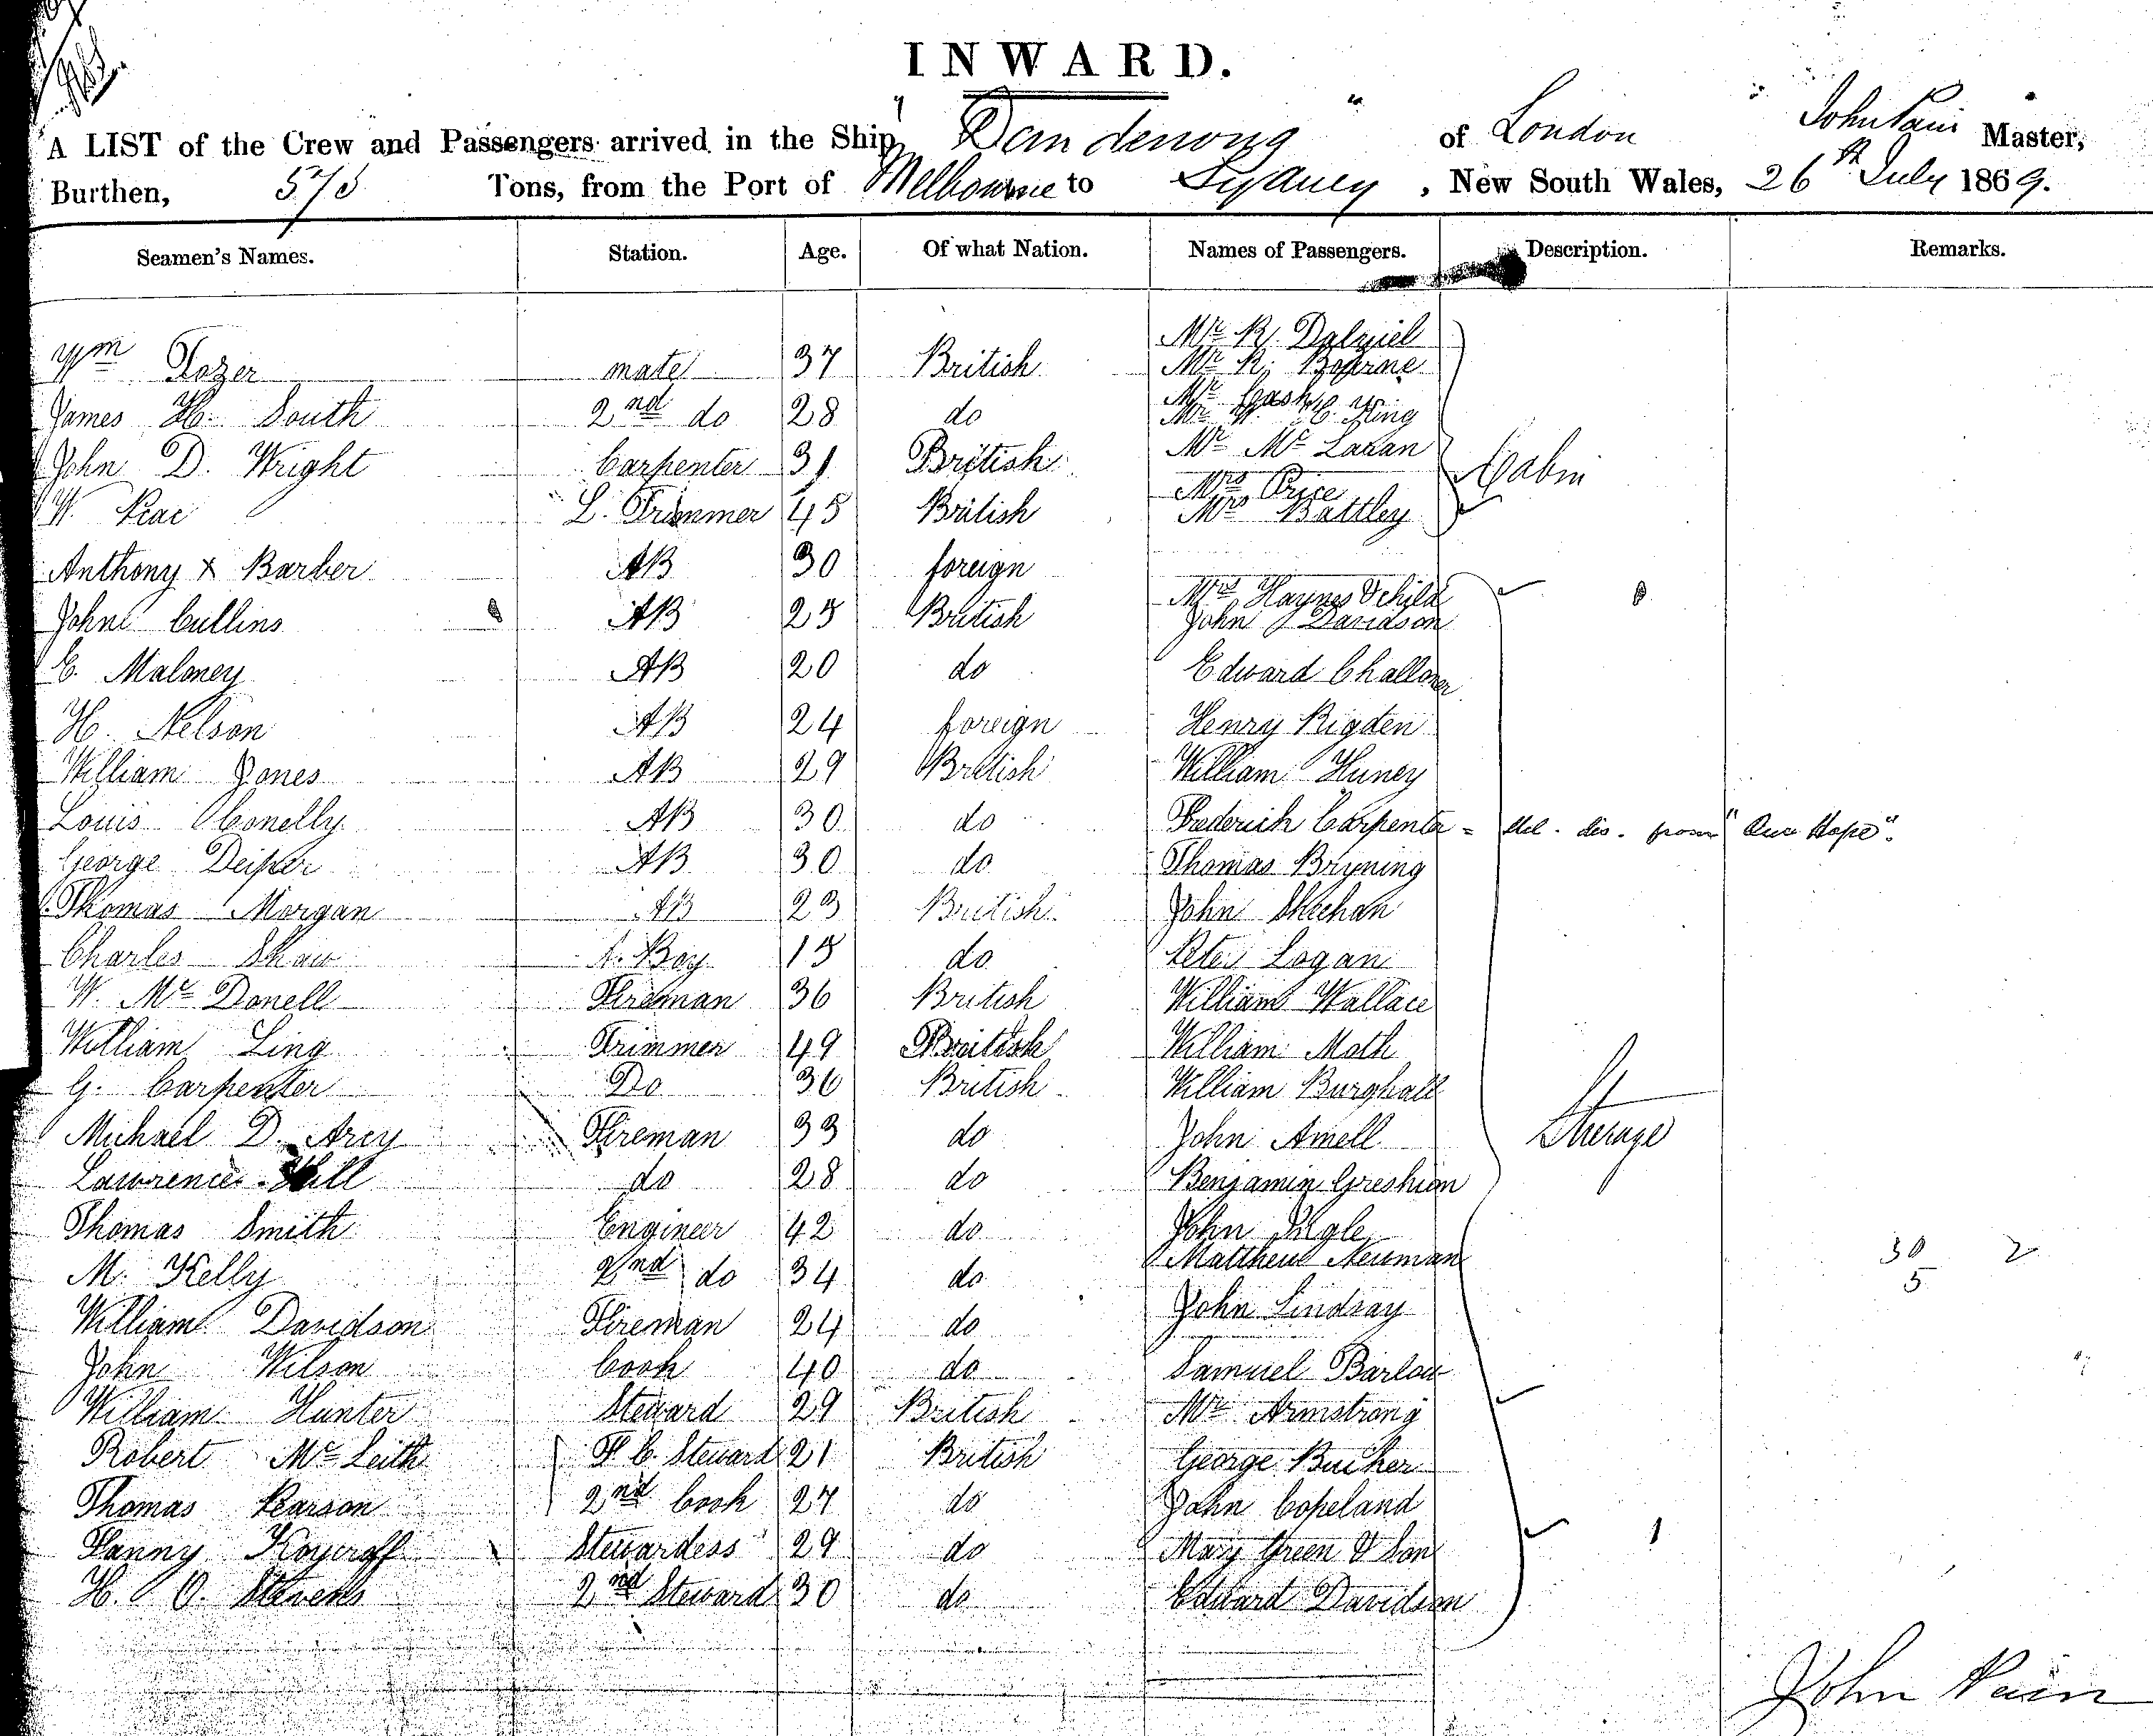 INWARD.
A LIST of the Crew and Passengers arrived in the Ship "Dandenong" of London John Pain Master,
Burthen, 575 Tons, from the Port of Melbourne to Sydney, New South Wales, 26th July 1869.
Seamen's Names. Station. Age. Of what Nation. Names of Passengers. Description. Remarks.
Mr R. Dalziel
Wm Tozer mate 37 British Mr R. Bourne
James H. South 2nd do 28 do Mr Gash
Mr W. C. King
John D. Wright Carpenter 31 British Mr Mc Lauan Cabin
Mrs Price
W. Rae L. Trimmer 45 British Mrs Battley
Anthony x Barber AB 30 foreign
Mrs Haynes & child
John Cullins AB 25 British John Davidson
C. Maloney AB 20 do Edward Challoner
H. Nelson AB 24 foreign Henry Rigden
William Jones AB 29 British William Huney
Louis Conelly AB 30 do Frederick Carpenter = dis. from "Our Hope".
George Deiper AB 30 do Thomas Bryning
Thomas Morgan AB 23 British John Sheehan
Charles Shaw Boy 15 do Peter Logan
W. Mc Donell Fireman 36 British William Wallace
William Ling Trimmer 49 British William Moth
G. Carpenter Do 36 British William Burghall
Michael D. Arcy Fireman 33 do John Amell Steerage
Lawrence Hill do 28 do Benjamin Greshion
Thomas Smith Engineer 42 do John
Matthew Neuman 30 2
M. Kelly 2nd do 34 do 5
William Davidson Fireman 24 do John Lindsay
John Wilson Cook 40 do Samuel Barlow
William Hunter Steward 29 British Mr Armstrong
Robert Mc Leith F. C. Steward 21 British George Bucher
Thomas Pearson 2nd Cook 27 do John Copeland
Fanny Stewardess 29 do Mary Green & Son 1
H. O. Stevens 2nd Steward 30 do Edward Davidson
John Pain